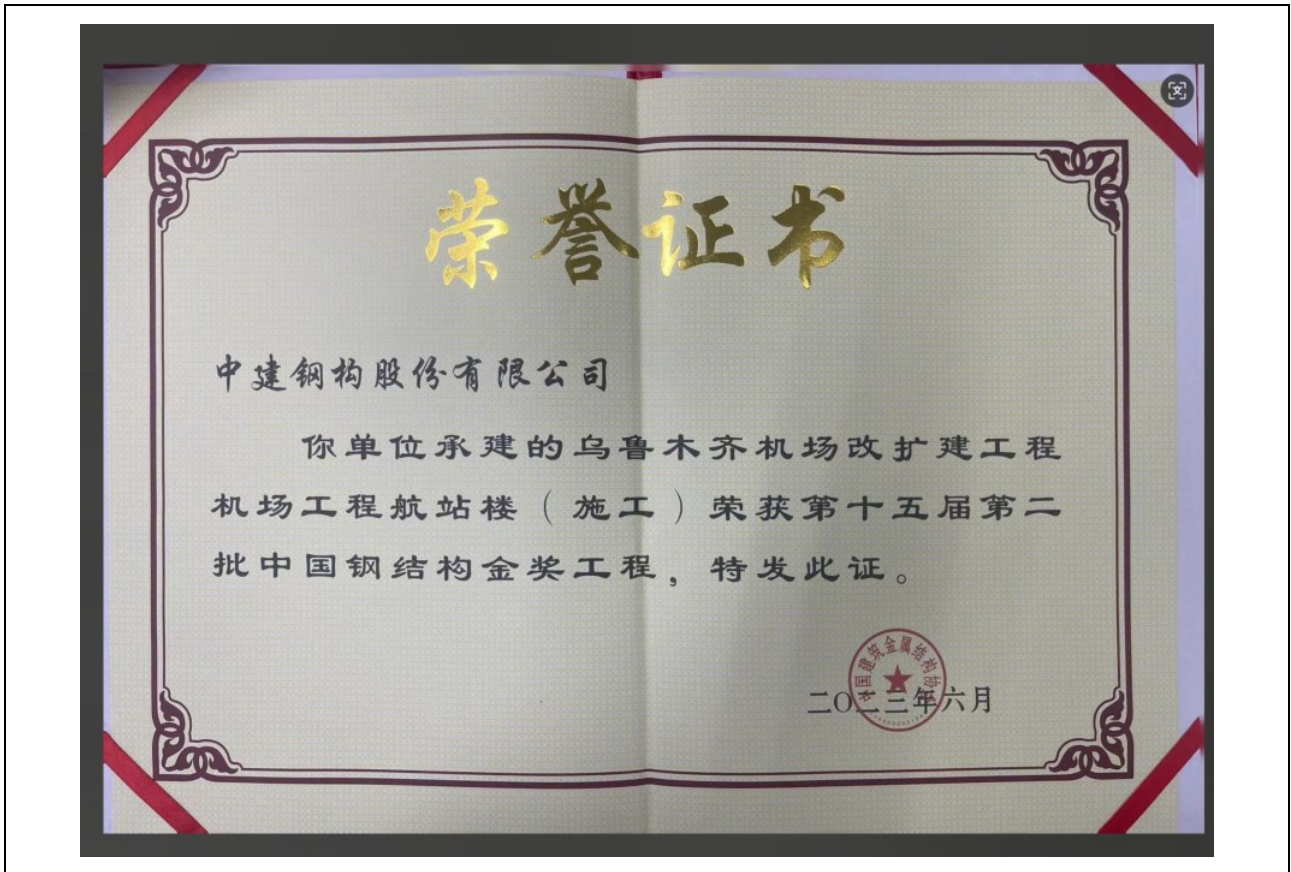 荣誉证书
中建钢构股份有限公司
你单位承建的乌鲁木齐机场改扩建工程
机场工程航站楼（施工）荣获第十五届第二
批中国钢结构金奖工程，特发此证。
中国建筑金属结构协会
二〇二三年六月